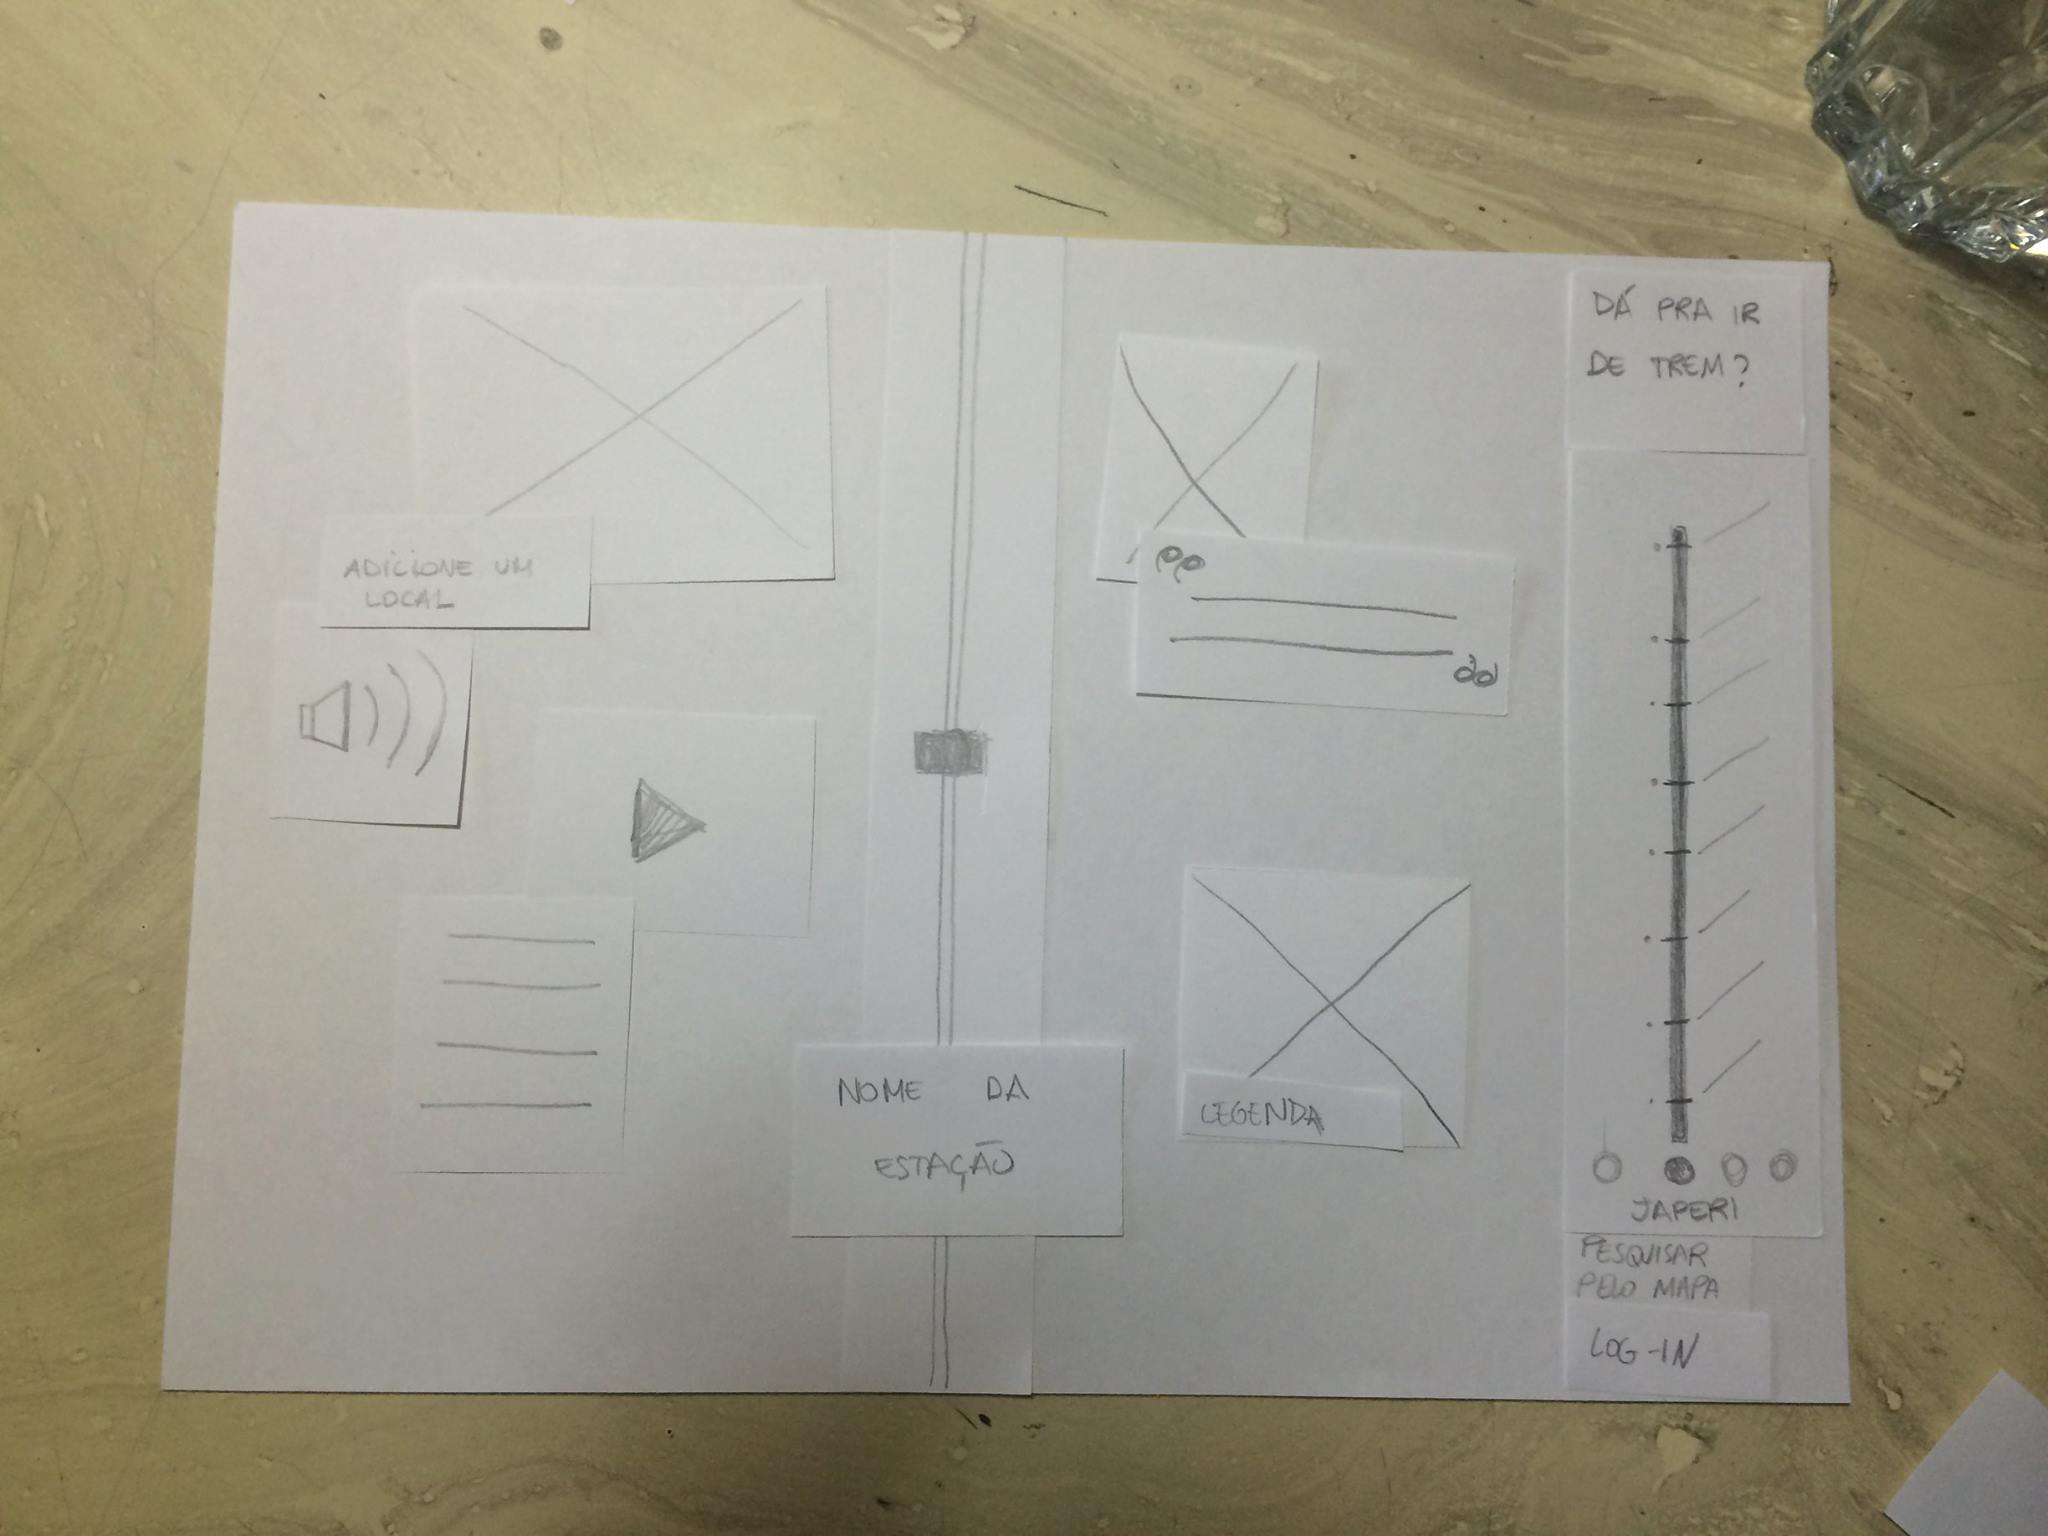 ADICIONE UM
LOCAL
NOME DA
ESTAÇÃO
LEGENDA
DÁ PRA IR
DE TREM?
JAPERI
PESQUISAR
PELO MAPA
LOG-IN